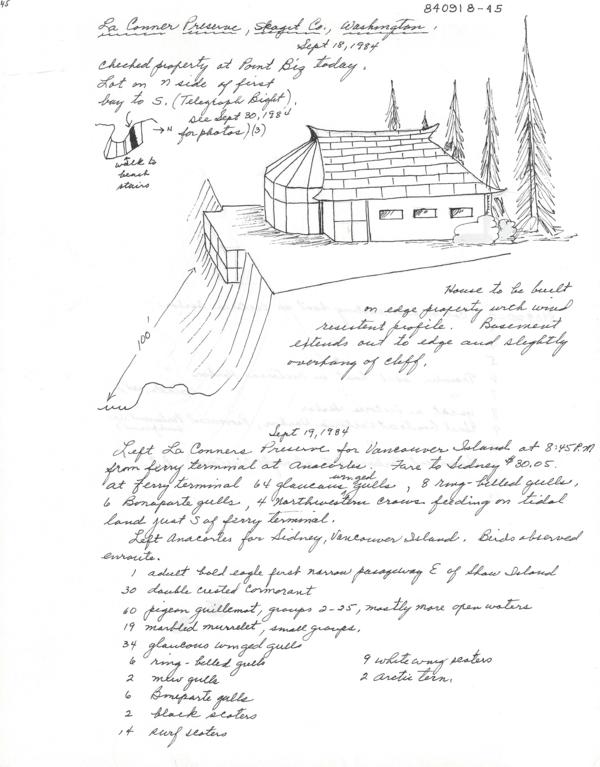 45
840918-45
La Conner Preserve, Skagit Co., Washington.
Sept 18, 1984
Checked property at Point Big today.
Lot on N side of first
bay to S. (Telegraph Bight).
see Sept 30, 1984
for photos) (3)
→ N
walk to
beach
stairs
House to be built
on edge property with wind
resistent profile. Basement
extends out to edge and slightly
overhang of cliff.
100'
Sept 19, 1984
Left La Conners Preserve for Vancouver Island at 8:45 P.M
from ferry terminal at Anacortes. Fare to Sidney $30.05.
At ferry terminal 64 glaucous winged gulls, 8 ring-billed gulls,
6 Bonaparte gulls, 4 Northwestern crows feeding on tidal
land just S of ferry terminal.
Left Anacortes for Sidney, Vancouver Island. Birds observed
enroute.
1 adult bald eagle first narrow passageway E of Shaw Island
30 double crested cormorant
60 pigeon guillemot, groups 2-25, mostly more open waters
19 marbled murrelet, small groups.
34 glaucous winged gulls
6 ring-billed gulls
2 mew gulls
6 Bonaparte gulls
2 black scoters
14 surf scoters
9 white wing scoters
2 arctic tern.